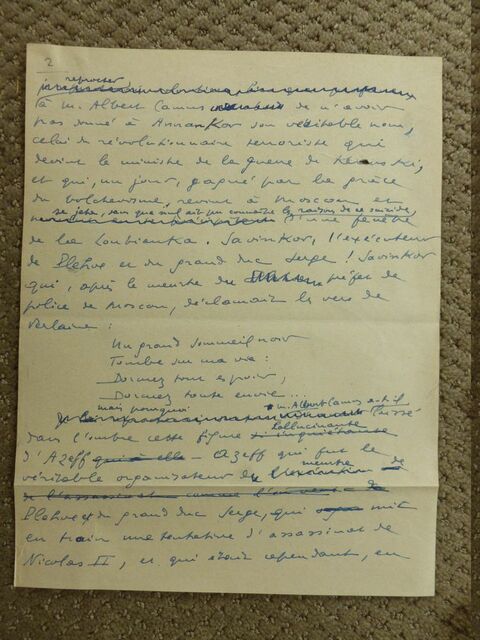 2
reprocher
à M. Albert Camus de n'avoir
pas donné à Annenkov son véritable nom,
celui du révolutionnaire terroriste qui
devint le ministre de la guerre de Kerenski,
et qui, un jour, gagné par la grâce
du bolchevisme, revint à Moscou et
se jeta, sans que nul ait pu connaître les raisons de ce suicide,
d'une fenêtre
de la Loubianka. Savinkov, l'exécuteur
de Plehve et du grand duc Serge ! Savinkov
qui, après le meurtre du préfet de
police de Moscou, déclamait les vers de
Verlaine :
Un grand sommeil noir
Tombe sur ma vie :
Dormez tout espoir,
Dormez toute envie...
mais pourquoi M. Albert Camus a-t-il
laissé
dans l'ombre cette figure hallucinante
d'Azeff - Azeff qui fut le
véritable organisateur du meurtre de
Plehve et du grand duc Serge, qui mit
en train une tentative d'assassinat de
Nicolas II, et qui était cependant, en